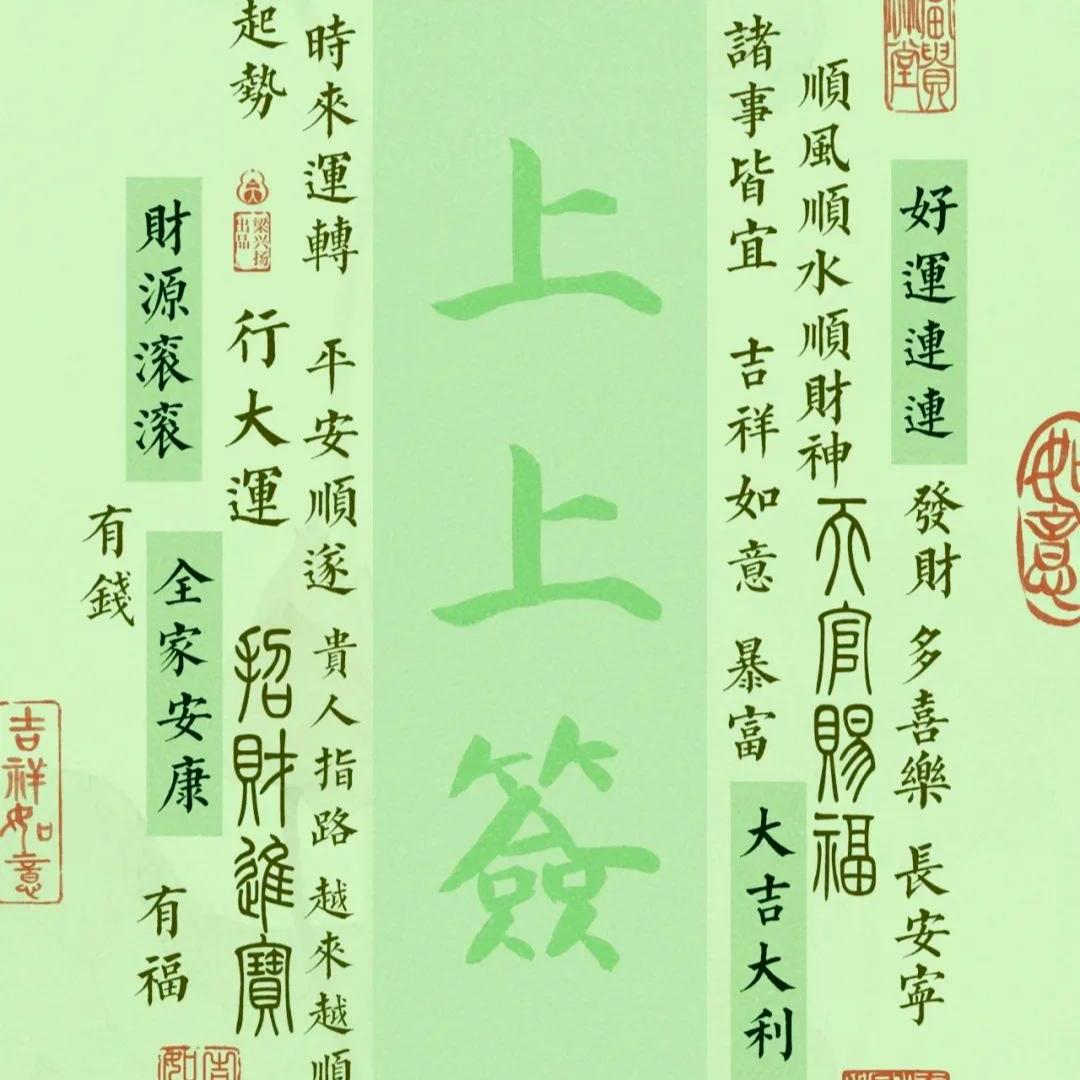 好運連連
發財 多喜樂 長安寧
順風順水順財神
天官賜福
諸事皆宜 吉祥如意 暴富
大吉大利
上上簽
時來運轉 平安順遂 貴人指路 越來越順
起勢
梁兴扬出品
行大運
招財進寶
財源滚滚
全家安康
有錢
有福
如意
吉祥如意